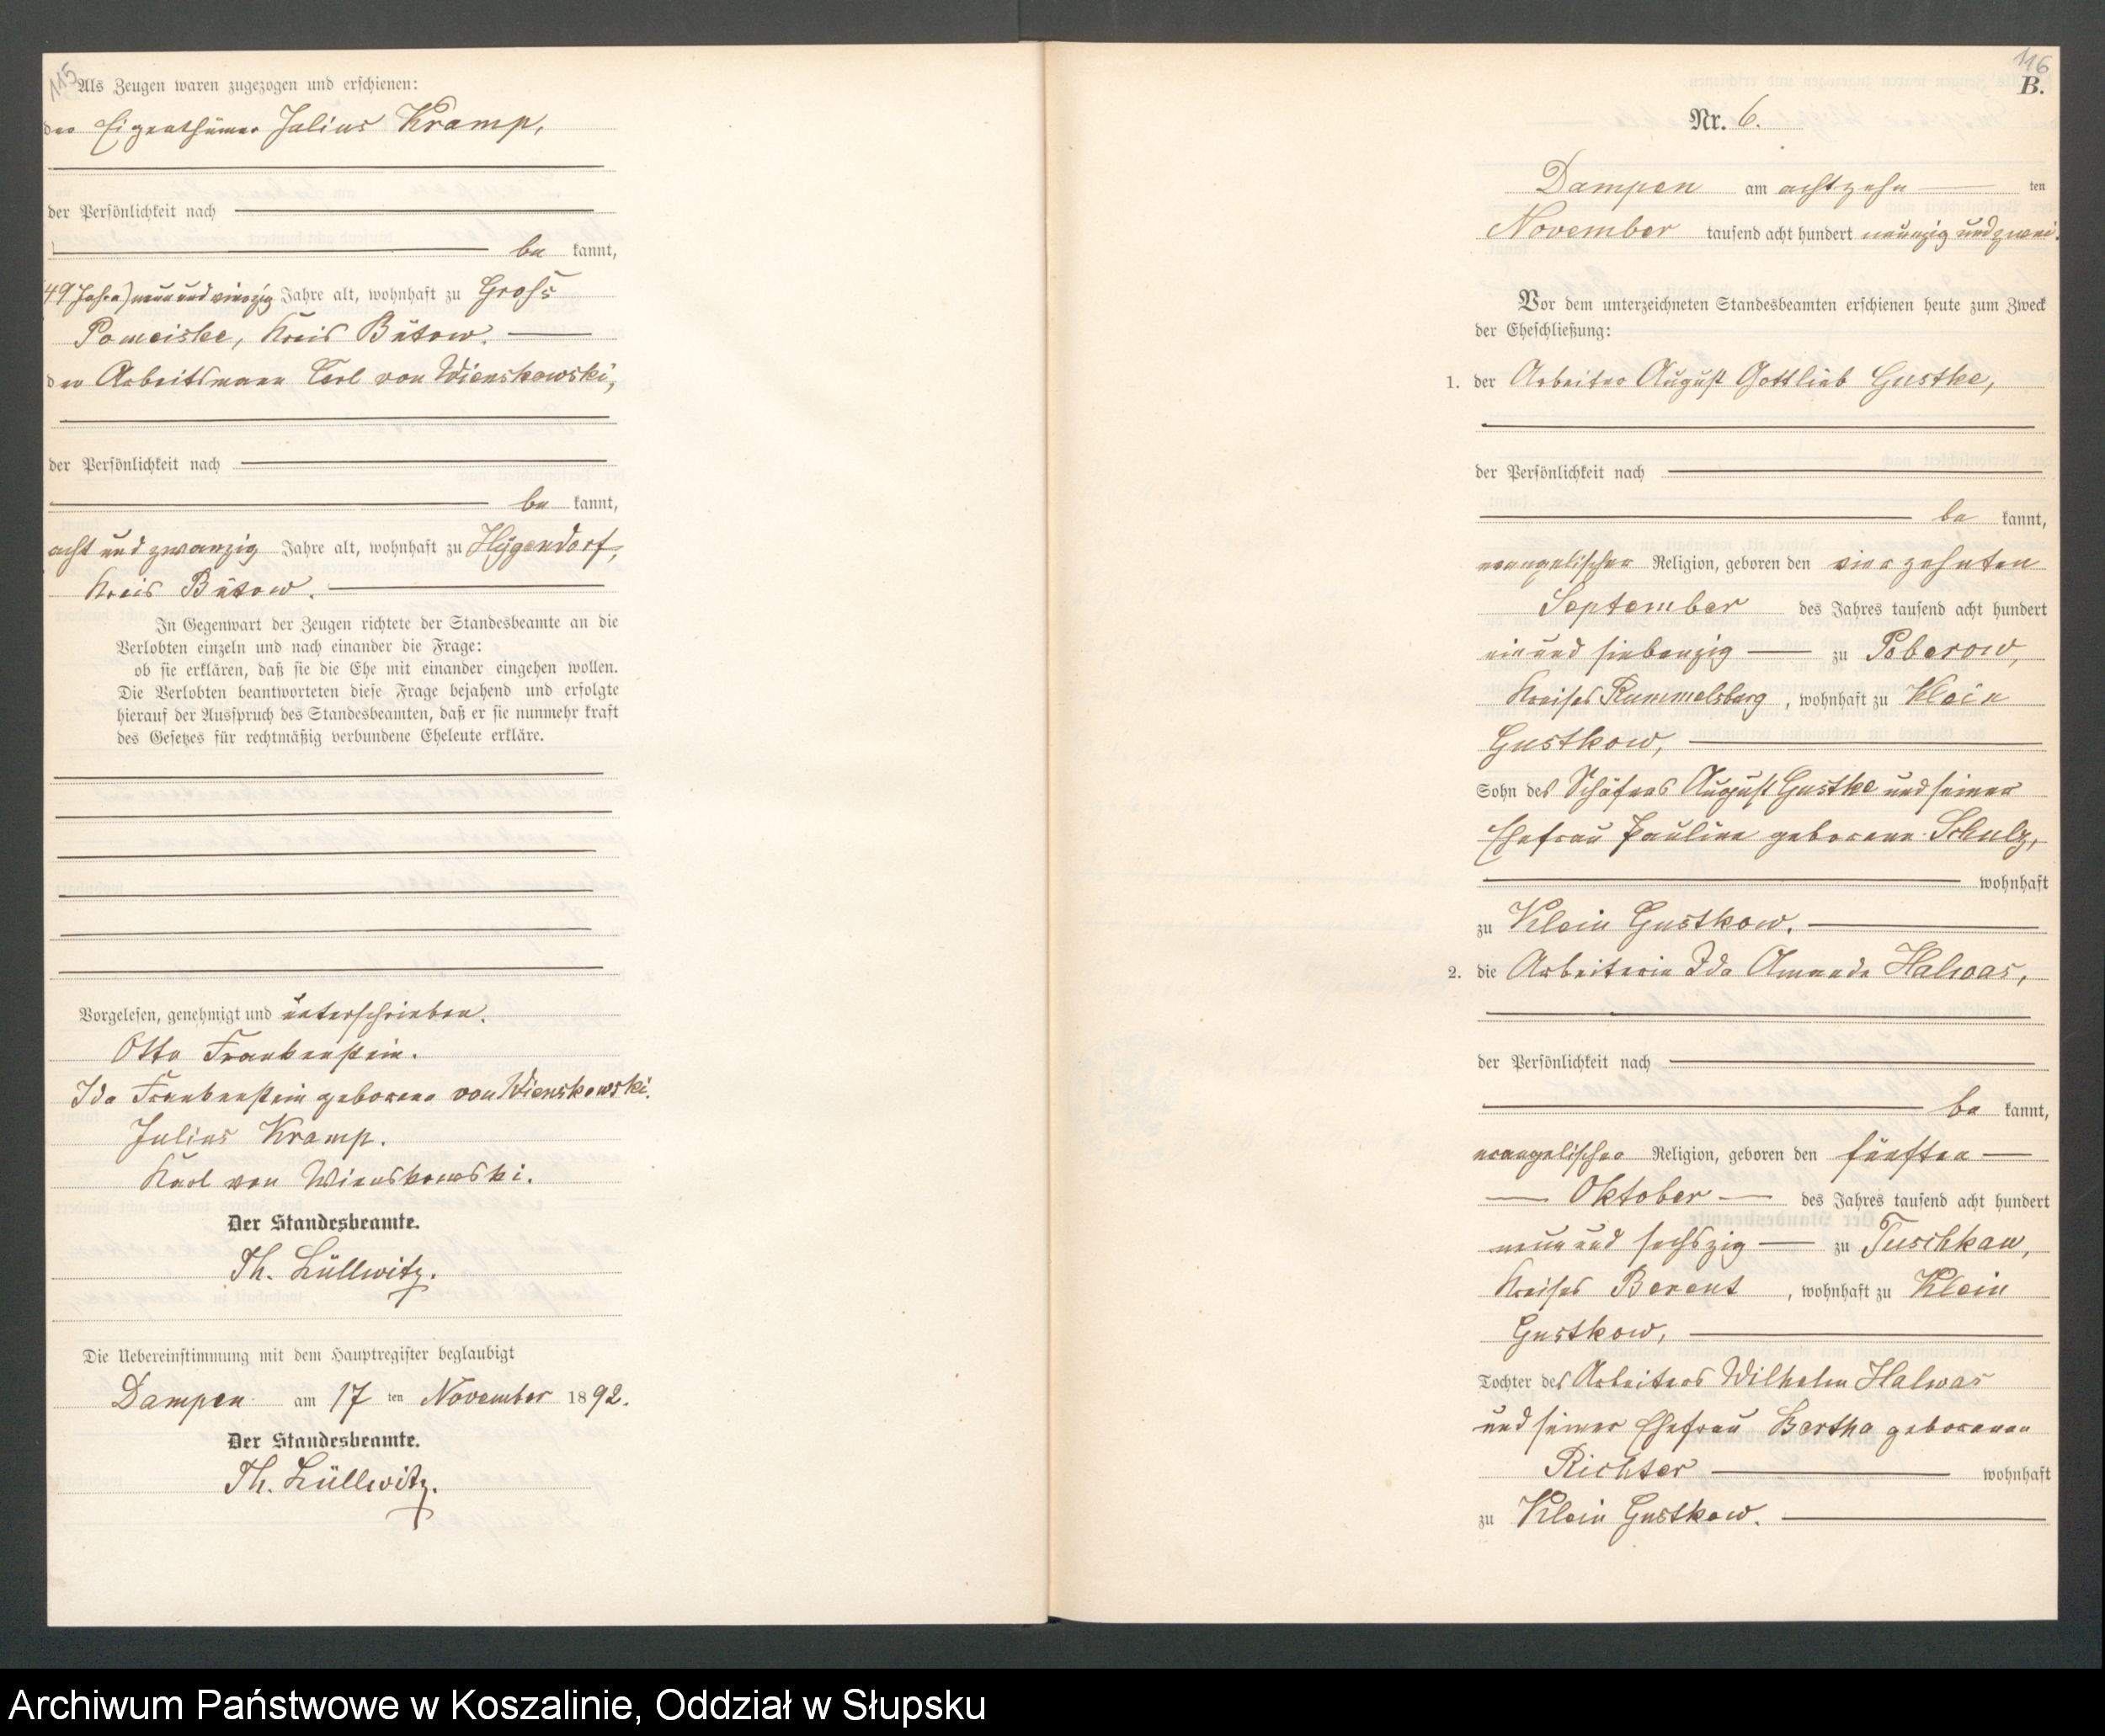 115
Als Zeugen waren zugezogen und erschienen:
der Eigenthümer Julius Kramp,
der Persönlichkeit nach
be kannt,
49 Jahre) neun und vierzig Jahre alt, wohnhaft zu Gross
Pomeiske, Kreis Bütow.
der Arbeitsmann Carl von Wienskowski,
der Persönlichkeit nach
be kannt,
acht und zwanzig Jahre alt, wohnhaft zu Hygendorf,
Kreis Bütow.
In Gegenwart der Zeugen richtete der Standesbeamte an die
Verlobten einzeln und nach einander die Frage:
ob sie erklären, daß sie die Ehe mit einander eingehen wollen.
Die Verlobten beantworteten diese Frage bejahend und erfolgte
hierauf der Ausspruch des Standesbeamten, daß er sie nunmehr kraft
des Gesetzes für rechtmäßig verbundene Eheleute erkläre.
Vorgelesen, genehmigt und unterschrieben.
Otto Frankenstein.
Ida Frankenstein geborene von Wienskowski.
Julius Kramp.
Karl von Wienskowski.
Der Standesbeamte.
Th. Lüllwitz.
Die Uebereinstimmung mit dem Hauptregister beglaubigt
Dampen am 17 ten November 1892.
Der Standesbeamte.
Th. Lüllwitz.
116
B.
Nr. 6.
Dampen am achtzehn ten
November tausend acht hundert neunzig und zwei.
Vor dem unterzeichneten Standesbeamten erschienen heute zum Zweck
der Eheschließung:
1. der Arbeiter August Gottlieb Gustke,
der Persönlichkeit nach
be kannt,
evangelischer Religion, geboren den vierzehnten
September des Jahres tausend acht hundert
ein und siebenzig zu Poberow,
Kreises Rummelsburg, wohnhaft zu Klein
Gustkow,
Sohn des Schäfers August Gustke und seiner
Ehefrau Pauline geborene Schulz,
wohnhaft
zu Klein Gustkow.
2. die Arbeiterin Ida Amanda Halwas,
der Persönlichkeit nach
be kannt,
evangelischer Religion, geboren den fünften
Oktober des Jahres tausend acht hundert
neun und sechszig zu Tuschkau,
Kreises Berent, wohnhaft zu Klein
Gustkow,
Tochter des Arbeiters Wilhelm Halwas
und seiner Ehefrau Bertha geborenen
Richter wohnhaft
zu Klein Gustkow.
Archiwum Państwowe w Koszalinie, Oddział w Słupsku